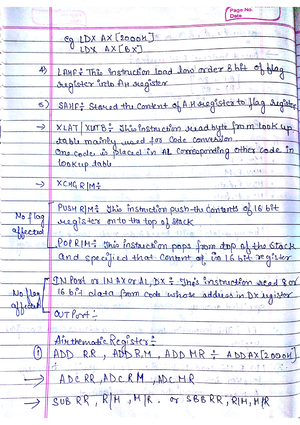 Page No.
Date
eg LDX AX [2000H]
LDX AX [BX]
4) LAHF: This instruction load low order 8 bit of flag
register into AH register
5) SAHF: Stored the Content of A.H register to flag register
→ XLAT / XLTB: This instruction read byte from look up
table mainly used for Code conversion
One code is placed in AL corresponding other code in
lookup table
→ XCHG R/M:
PUSH R/M: This instruction push the contents of 16 bit
register onto the top of stack
No flag
affected
POP R/M: This instruction pops from top of the Stack
and specified that Content of in 16 bit register
IN Port or IN AX or AL, DX: This instruction read 8 or
16 bit data from code whose address in Dx register
No flag
affected
OUT Port:-
Airthematic Register:-
① ADD RR, ADD R,M, ADD MR ÷ ADD AX [2000H]
→ ADC RR, ADC R M, ADC MR
→ SUB RR, R/M, M/R. or SBB RR, R/M, M/R